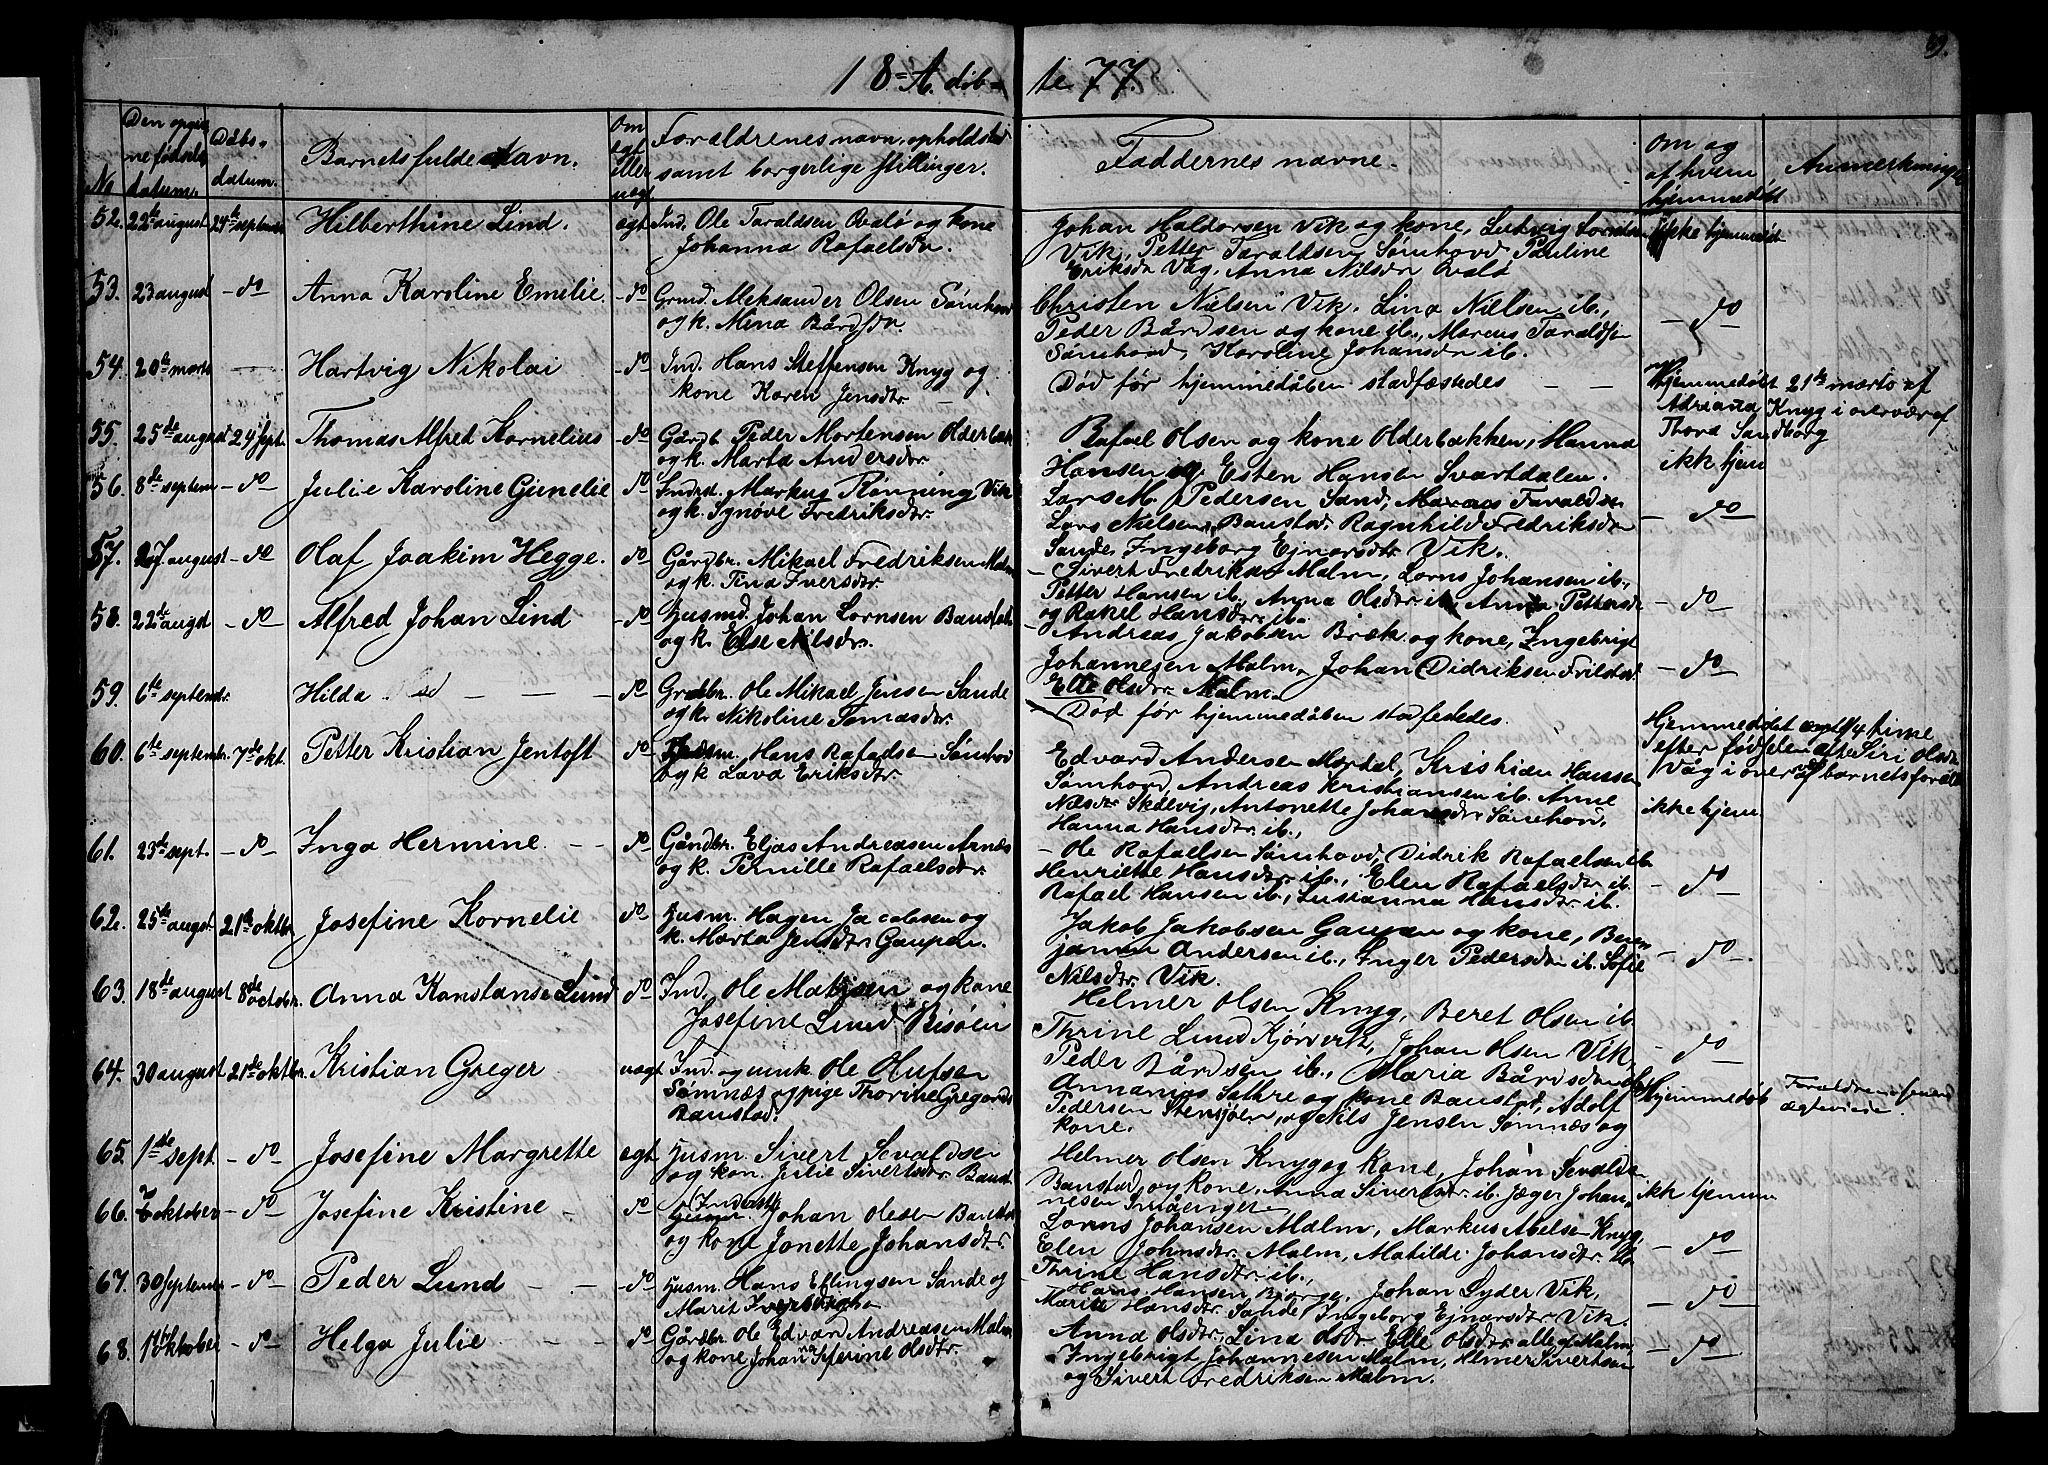 39.
18 A. døb-
te 77.
No
Den opgivne fødselsdatum.
Døbsdatum.
Barnets fulde Navn.
Om egt eller uegt
Forældrenes navn, opholdsted
samt borgerlige stillinger.
Faddernes navne.
Om og af hvem hjemmedøbt
Anmerkninger
52. 22de august 24de septembr Hilberthine Lind. egt Ind. Ole Taraldsen Ovalø og kone
Johanna Rafaelsdr.
Johan Haldorsen Vik og kone, Ludvig Lorntsen ikke hjemmedøbt
Vik, Petter Taraldsen Sømhovd, Pauline
Eriksdr Våg, Anna Nilsdr Ovalø
53. 23 august - do Anna Karoline Emelie. - do Grmd. Aleksander Olsen Sømhovd
og k. Mina Bårdsdr.
Christen Nielsen Vik. Lina Nielsen ib.,
Peder Bårdsen og kone ib., Marcus Taraldsen - do -
Sømhovd, Karoline Johansdr ib.
54. 20de marts Hartvig Nikolai - do Ind. Hans Steffensen Knyg og
kone Karen Jensdr.
Død før hjemmedåben stadfæstedes - -
Hjemmedøbt 21de marts af
Adriana Knyg i overvær af
Thora Sandborg
55. 25de august 24 sept. Thomas Alfred Kornelius - do Gårdb. Peder Mortensen Olderbæk
og k. Marta Andersdr.
Rafael Olsen og kone Olderbækken, Hanna
Hansen ib. Esten Hansen Svartdalen. ikk hjem
56. 8de septem - do - Julie Karoline Gunelie do Indrd. Markus Rønning, Vik
og k. Synøve Fredriksdr.
Lars M. Pedersen Sand, Marcus Taraldsen
Lars Nielsen, Baustad Ragnhild Fredriksdr - do -
Sande, Ingeborg Ejnarsdr Vik.
57. 27. august - do - Olaf Joakim Hegge. do Gårdbr. Mikael Fredriksen Malm
og k. Tina Iversdr.
- Sivert Fredriksen Malm, Lorns Johansen ib.,
Petter Hansen ib., Anna Olsdr. ib., Anna Pettersdr - do -
og Rakel Hansdr. ib.
58. 22de augst - do - Alfred Johan Lind - do Husmd. Johan Lornsen Baustad
og k. Else Nilsdr.
- Andreas Jakobsen Bræk og kone, Ingebrigt
Johannesen Malm, Johan Didriksen Frilstad - do -
Elle Olsdr. Malm.
59. 6te septembr. Hilda - - - do Grdbr. Ole Mikael Jensen Sande
og k. Nikoline Tomasdr.
- Død før hjemmedåben stadfestedes.
Hjemmedøbt 1/4 time
efter fødselen af Siri Olsdr
Våg i overvær af barnets forældre
60. 6te septembr. 7de okt. Petter Kristian Jentoft do Hans Rafaelsen Sømhovd
og k Lava Eriksdr.
Edvard Andersen Mordal, Kristian Hansen
Sømhovd, Andreas Kristiansen ib. Anne
Nilsdr Skålvig, Antonette Johansdr Sømhovd, ikke hjem
Hanna Hansdr. ib.,
61. 23de sept. - do - Inga Hermine. - - do Gårdbr. Eljas Andreasen Arnes
og k. Pernille Rafaelsdr.
- Ole Rafaelsen Sømhovd, Didrik Rafaelsen ib.
Henriette Hansdr. ib., Elen Rafaelsdr ib. - do -
Rafael Hansen ib., Susianna Hansdr. ib.
62. 25de augst 21de oktbr. Josefine Kornelie do Husm. Hagen Jacobsen og
k. Marta Jensdr Gaupen.
Jakob Jakobsen Gaupen og kone, Benjamin
Andersen ib., Inger Pedersdr ib. Sofie - do -
Nilsdr. Vik.
63. 18de august 8de octobr. Anna Konstanse Lund do Ind. Ole Matisen og kone
Josefine Lund Risøen
Helmer Olsen Knyg, Beret Olsen ib.
Thrine Lund Kjørvik, Johan Olsen Vik, - do -
Peder Bårdsen ib., Maria Bårdsdr
64. 30 august 21de oktbr. Kristian Greger uægt Ind. og unk Ole Olufsen
Sømnæs og pige Thorine Gregorsdr
Baustad.
Annanias Sathre og kone Baustad, Adolf Hjemmedøb Forældrene
Pedersen Stensjøen, og Nils Jensen Sømnæs og ægteviede.
kone.
65. 1ste sept. - do - Josefine Margrette egt. Husm. Sivert Sevaldsen
og kon. Julie Sivertsdr. Baust.
Helmer Olsen Knyg og kone, Johan Sevaldsn
Baustad, og kone, Anna Sivertsdr. ib. Jæger Johan- ikk hjemme
nesen Småenget
66. 7 oktober - do - Josefine Kristine - do Inderst Johan Olesen Baustad
og kone Jonette Johansdr.
Lorns Johansen Malm, Markus Abelsen Knyg,
Elen Johnsdr. Malm, Matilde Johansdr. ib. - do -
Thrine Hansdr. ib.,
67. 30 september - do - Peder Lund - - do Husm. Hans Eflingsen Sande og
Marit
Hans Hansen Bjørge, Johan Lyder Vik,
Marie Hansdr. Sande, Ingeborg Ejnarsdr Vik. - do -
68. 1 oktober - do - Helga Julie - - do Gårdbr. Ole Edvard Andreasen Malm
og kone Johanna Seferine Olsdr.
Anna Olsdr, Lina Olsdr. Elle Olsdr alle af Malm,
Ingebrigt Johannesen Malm, Helmer Sivertsen - do -
og Sivert Fredriksen Malm.